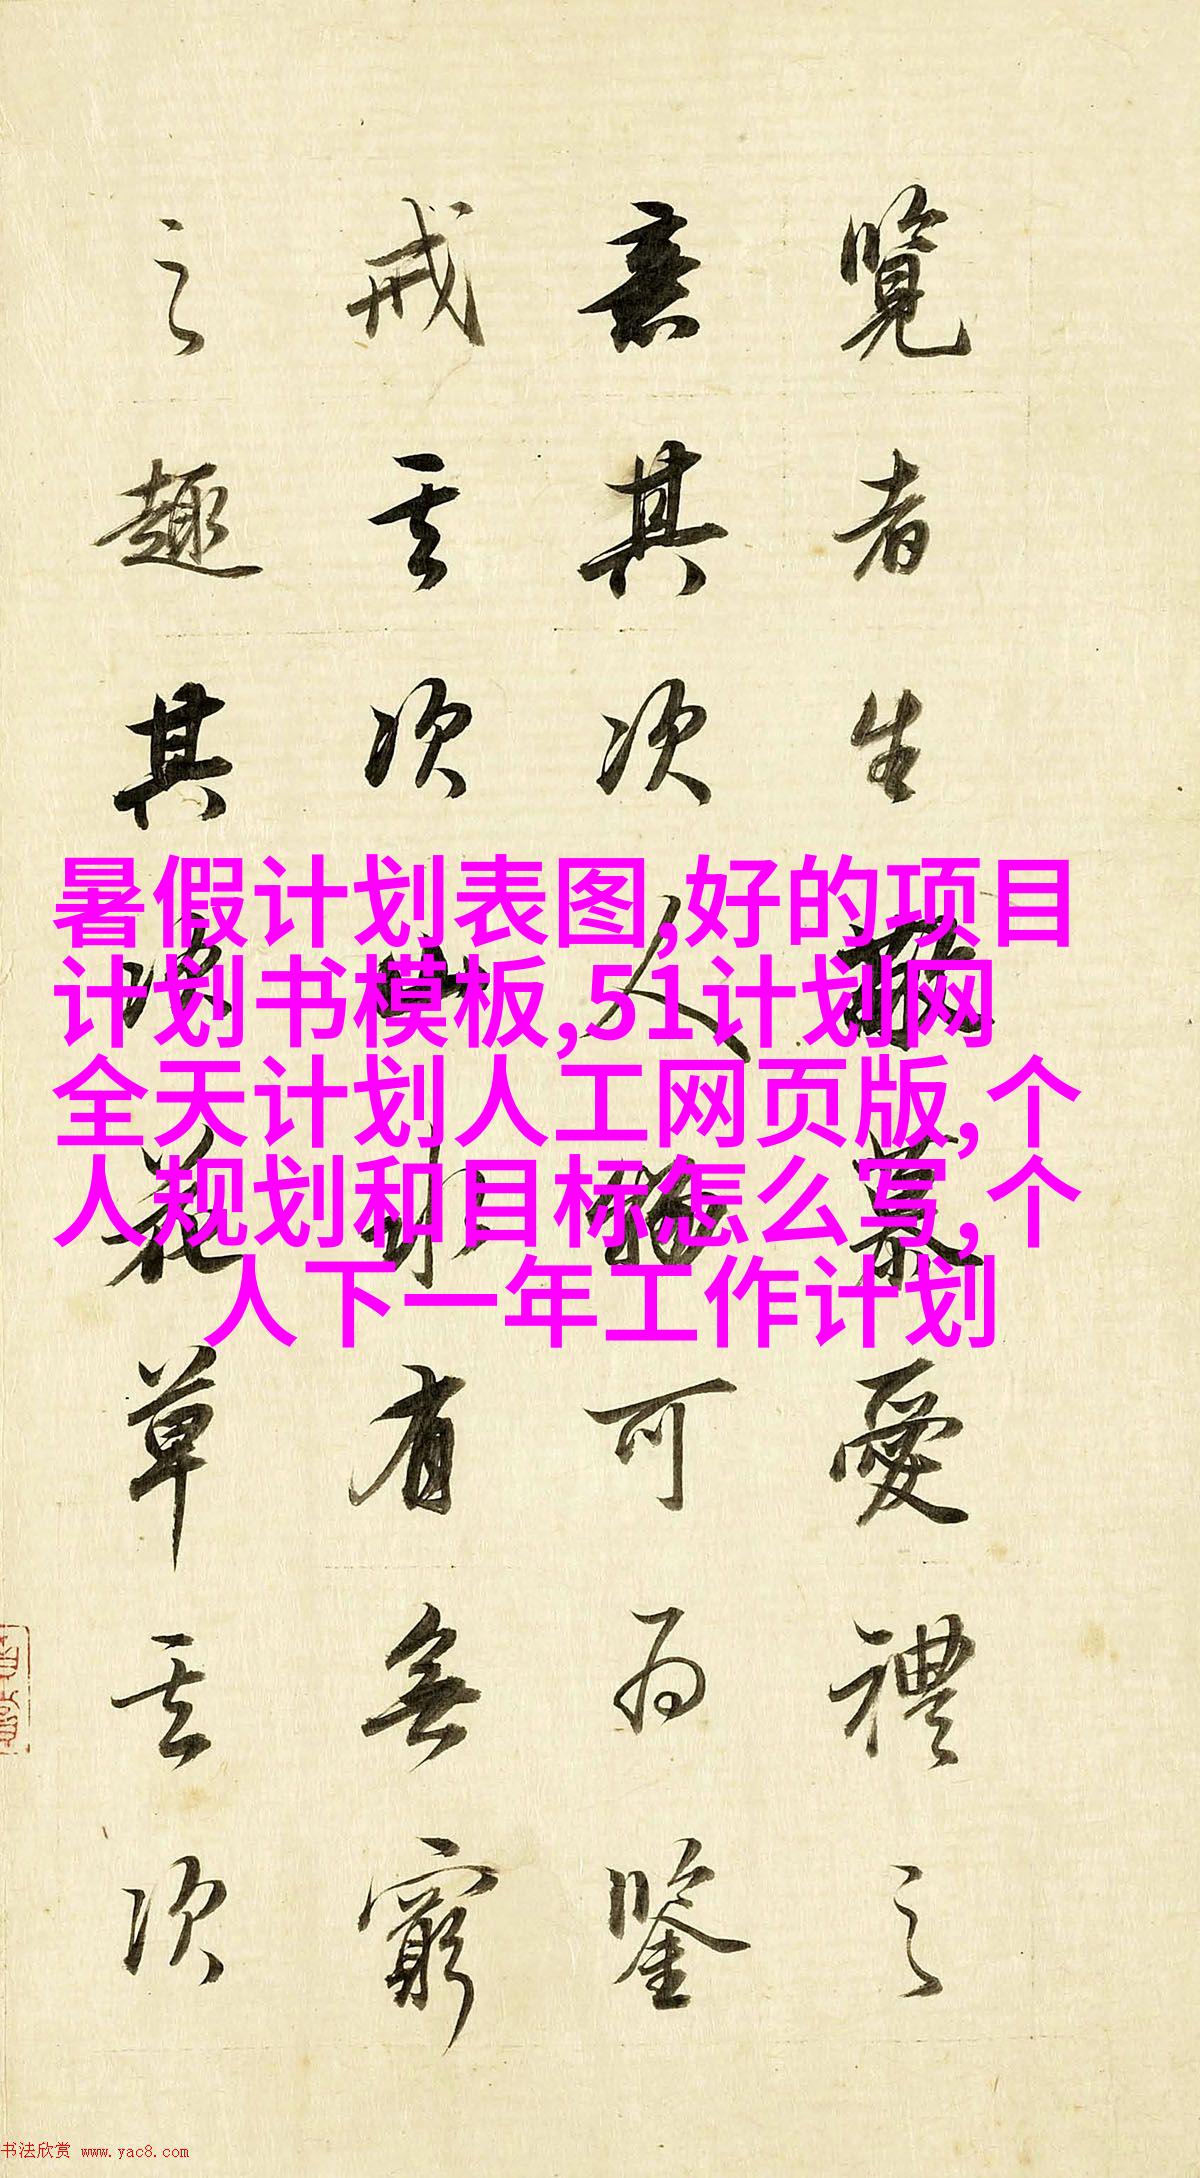 覽者生敬慕愛禮之
意其次人物可為鑒
戒其次山水有無窮
之趣其次花草其次
暑假计划表图,好的项目
计划书模板,51计划网
全天计划人工网页版,个
人规划和目标怎么写,个
人下一年工作计划
书法欣赏 www.yac8.com